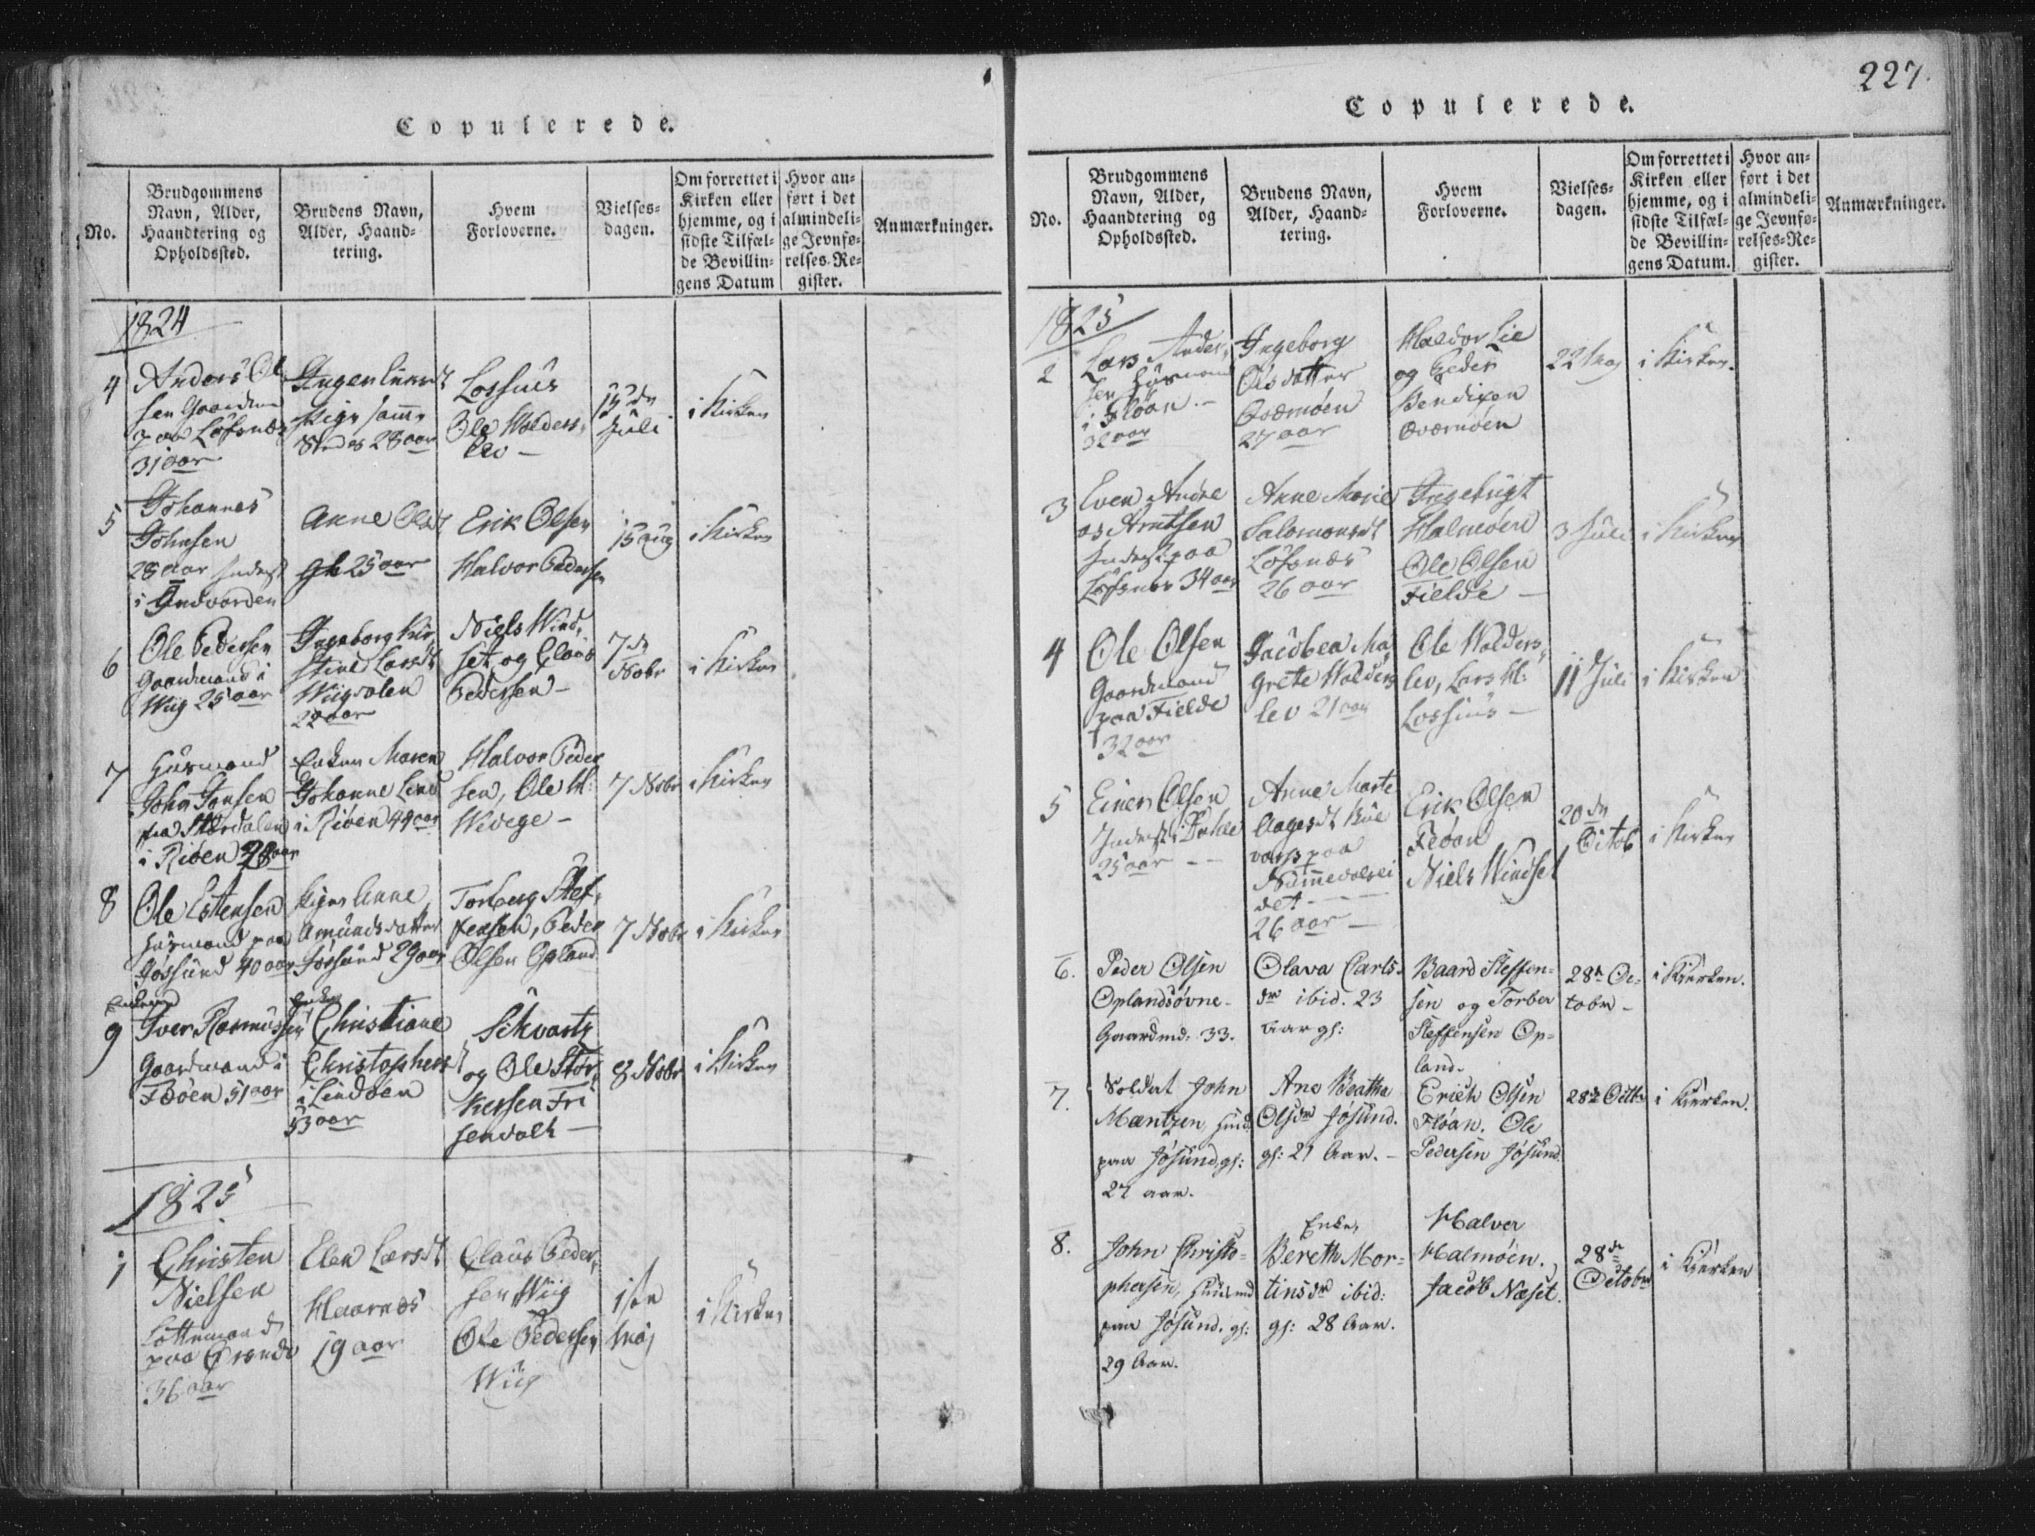 Copulerede.
No.
Brudgommens
Navn, Alder,
Haandtering og
Opholdssted.
Brudens Navn,
Alder, Haand-
tering.
Hvem
Forloverne.
Vielses-
dagen.
Om forrettet i
Kirken eller
hjemme, og i
sidste Tilfæl-
de Bevillin-
gens Datum
Hvor an-
ført i det
almindeli-
ge Jevnfø-
relses-Re-
gister.
Anmærkninger.
1824
4
Anders Ol
sen Gaardm
paa Løfsnæs
31 aar
Pige samme
Steds 28 aar
Lossius
Ole Wolders,
lev -
Juli
i Kirken
5
Johannes
Johnsen
28 aar Inderst
i Indvorden
Anne Olsdt
gl 25 aar
Erik Olsen
Halvor Pedersen
15 aug
i Kirken
6
Ole Pedersen
Gaardmand i
Wiig 25 aar
Ingeborg Kir,
stine Larsdt
Wiigdalen
22 aar
Niels Wind,
set og Claus
Pedersen -
7de
Nobr
i Kirken
7
Huusmand
John Jonsen
fra Størdalen
i Riøen 28 aar
Enken Maren
Johanne Lind
i Riøen 49 aar
Halvor Peder
sen, Ole H:
Wedege -
7 Nobr
i Kirken
8
Ole Estensen
Huusmand paa
Jøssund 40 aar
Pigen Anne
Amundsdatter
Jøssund 29 aar
Torberg Stef,
fensen, Peder
Olsen Opland
7 Nobr
i Kirken
9
Enkem
Iver Rasmussen
Gaardmand i
Fæøen 51 aar
Enke
Christiane
Christophersd
i Lindøen
53 aar
Schvartz
og Ole Stør,
kersen Fri
sendahl -
8 Nobr
i Kirken
1825
1
Christen
Nielsen
paa
36 aar
Elen Larsdt
Haarnæs
19 aar
Claus Peder,
sen Wiig
Ole Pedersen
Wiig
1ste
Maj
i Kirken
227.
Copulerede.
No.
Brudgommens
Navn, Alder,
Haandtering og
Opholdssted.
Brudens Navn,
Alder, Haand-
tering.
Hvem
Forloverne.
Vielses-
dagen.
Om forrettet i
Kirken eller
hjemme, og i
sidste Tilfæl-
de Bevillin-
gens Datum.
Hvor an-
ført i det
almindeli-
ge Jevnfø-
relses-Re-
gister.
Anmærkninger.
1825
2
Lars Ander,
sen Husmand
i Fløan. -
32 aar
Ingeborg
Olsdatter
Qværnøen
27 aar
Haldor Lie
og Peder
Bendixen
Qværnøen
22 Maj
i Kirken.
3
Even Andre
as Arntsen
Inderst paa
Løfsnæs 34 aar
Anne Marie
Salomonsdt
Løfsnæs
26 aar
Ingebrigt
Halmøen
Ole Olsen
Fielde -
3 Juli
i Kirken
4
Ole Olsen
Gaardmand
paa Fielde
32 aar
Jacobea Ma,
grete Wolders
lev 21 aar
Ole Wolders,
lev, Lars H:
Lossius -
11 Juli
i Kirken
5
Einer Olsen
Inderst i
25 aar - -
Anne Marte
Aagesdt
paa
Nummedalsei
det - - -
26 aar -
Erik Olsen
Fløan
Niels Windset
20de
Octob
i Kirken
6.
Peder Olsen
Oplandsøvne-
Gaardmd: 33.
Olava Carls-
dr ibid. 23
Aar gl:
Baard Steffen-
sen og Torber
Steffensen Op-
land.
28de Oc-
tobr -
i Kierken.
7.
Soldat John
Mantzen, Huusmd
paa Jøsund, gl:
27 aar.
Ane Beatha
Olsdr Jøsund.
gl: 21 Aar. -
Erich Olsen
Fløan. Ole
Pedersen Jøsund.
28de Octbr
i Kierken.
8.
John Christo-
phersen, Huusmd
paa Jøsund. gl:
29 Aar.
Enke,
Bereth Mor-
tinsdr ibid:
gl: 28 Aar.
Halver
Halmøen.
Jacob Næset.
28de
Octobr
i Kierken